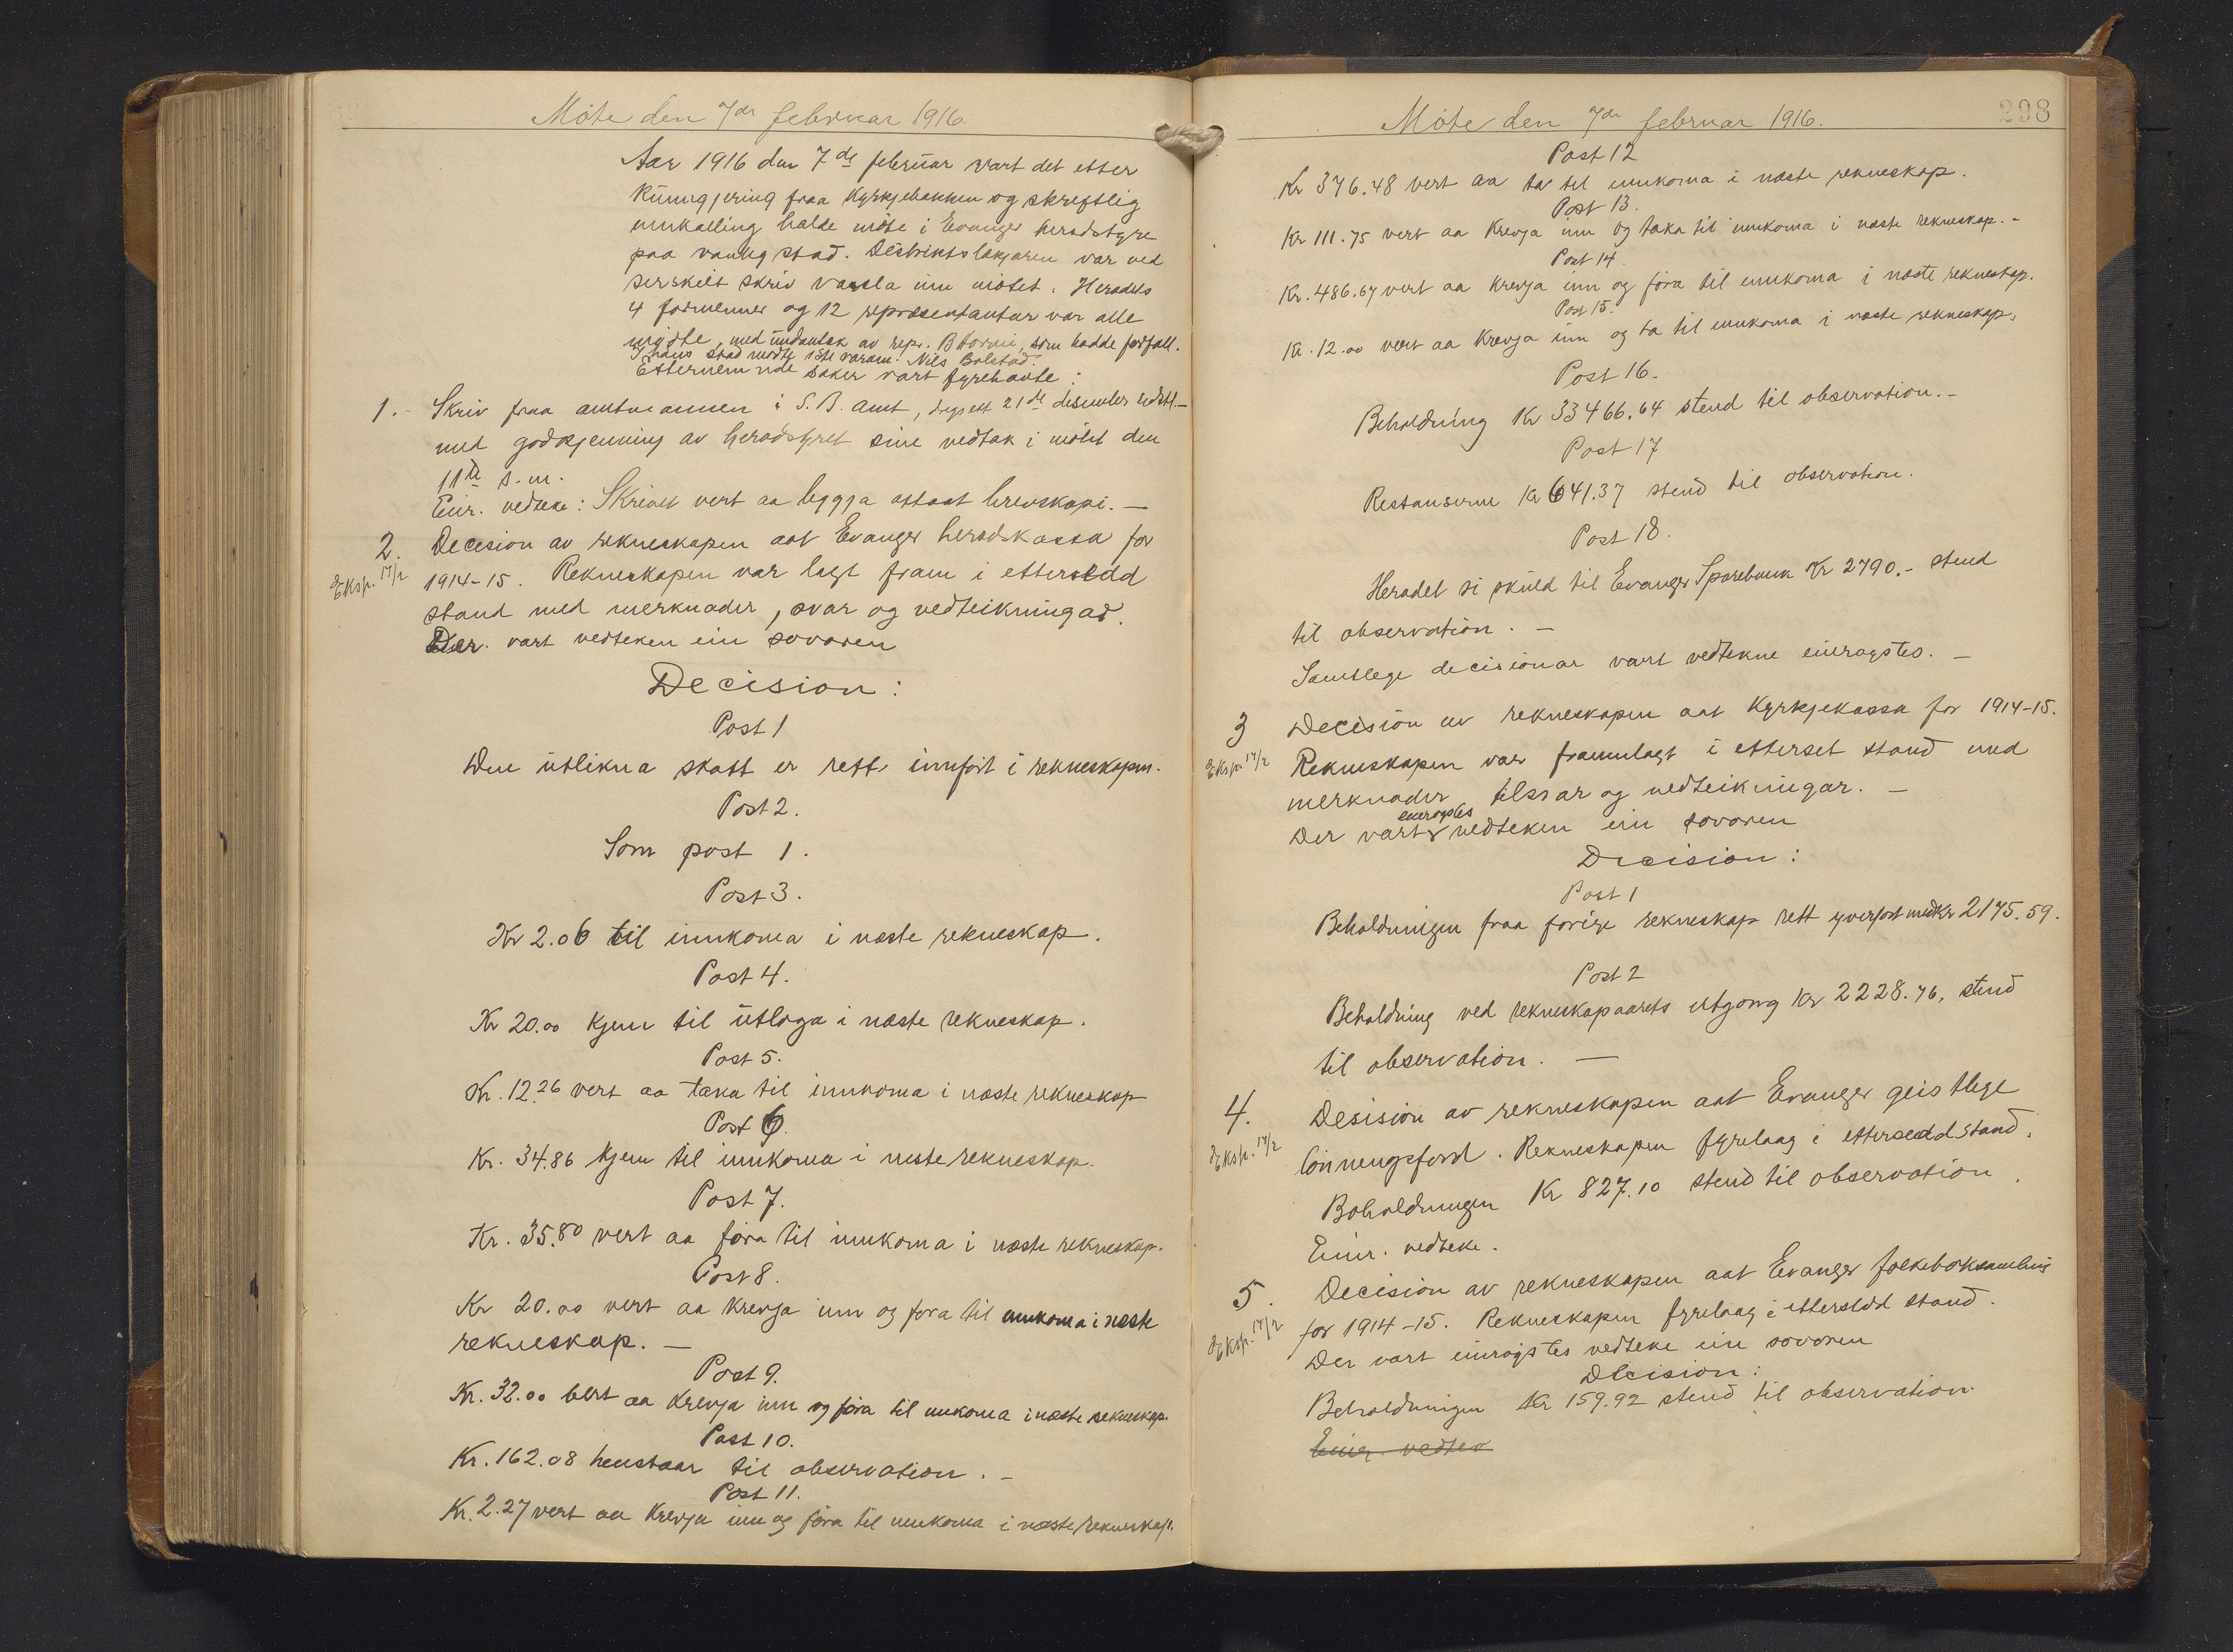 Møte den 7de februar 1916.
Aar 1916 den 7de februar vart det etter
kunngjering fraa kyrkjebakken og skreftlig
innkalling halde møte i Evanger heradstyre
paa vanleg stad. Distriktslækjaren var ved
serskilt skriv varsla um møtet. Heradets
4 formenner og 12 repræsentantar var alle
møtte, med undantak av repr. B Horni, som hadde forfall.
I hans stad møtte 1ste varam. Nils Bolstad.
Etternemnde saker vart fyrehavte:
1. Skriv fraa amtmannen i S. B. amt, dagsett 21de desember sidstl.-
med godkjenning av heradstyret sine vedtak i møtet den
11te s.m.
Einr. vedteke: Skrivet vert aa leggja attaat brevskapi. —
2. Decision av rekneskapen aat Evanger heradskassa for
Eksp. 17/2
1914-15. Rekneskapen var lagt fram i ettersedd
stand med merknader, svar og vedteikningad.
Der. vart vedteken ein sovoren
Decision:
Post 1
Den utlikna skatt er rett innført i rekneskapen.
Post 2.
Som post 1.
Post 3.
Kr 2.06 til innkoma i næste rekneskap.
Post 4.
Kr 20.00 kjem til utlaga i næste rekneskap.
Post 5.
Kr. 12.26 vert aa taka til innkoma i næste rekneskap
Post 6.
Kr. 34.86 kjem til innkoma i neste rekneskap.
Post 7.
Kr. 35.80 vert aa føra til innkoma i næste rekneskap.
Post 8.
Kr 20.00 vert aa krevja inn og føra til innkoma i næste
rekneskap. —
Post 9.
Kr. 32.00 vert aa krevja inn og føra til innkoma i næste rekneskap.
Post 10.
Kr. 162.08 henstaar til observation. -
Post 11.
Kr. 2.27 vert aa krevja inn og føra til innkoma i næste rekneskap.
Møte den 7de februar 1916.
298
Post 12
Kr 376.48 vert aa ta til innkoma i næste rekneskap.
Post 13.
Kr 111.75 vert aa krevja inn og taka til innkoma i næste rekneskap. -
Post 14.
Kr. 486.67 vert aa krevja inn og føra til innkoma i næste rekneskap.
Post 15.
Kr. 12.00 vert aa krevja inn og ta til innkoma i næste rekneskap.
Post 16.
Beholdning Kr 33466.64 stend til observation. -
Post 17
Restanserne Kr 641.37 stend til observation.
Post 18.
Heradet si skuld til Evanger Sparebank Kr 2790.- stend
til observation. —
Samtlege decisionar vart vedtekne einrøystes. —
3 Decision av rekneskapen aat Kyrkjekassa for 1914-15.
Eksp. 17/2
Rekneskapen var framlagt i etterset stand med
merknader tilsvar og vedteikningar. —
einrøystes
Der vart vedteken ein sovoren
Decision:
Post 1
Beholdningen fraa forige rekneskap rett yverført med Kr 2175.59.
Post 2
Beholdning ved rekneskapaarets utgong Kr 2228.76, stend
til observation. —
4. Desision av rekneskapen aat Evanger geistlege
Eksp. 17/2
lønnengsfond. Rekneskapen fyrelaag i ettersedd stand.
Beholdningen Kr 827.10 stend til observation.
Einr. vedteke.
5. Decision av rekneskapen aat Evanger folkeboksamling
Eksp. 17/2
for 1914-15. Rekneskapen fyrelaag i ettersedd stand.
Der vart einrøystes vedteke ein sovoren
Decision:
Beholdningen Kr 159.92 stend til observation.
Einr. vedtek